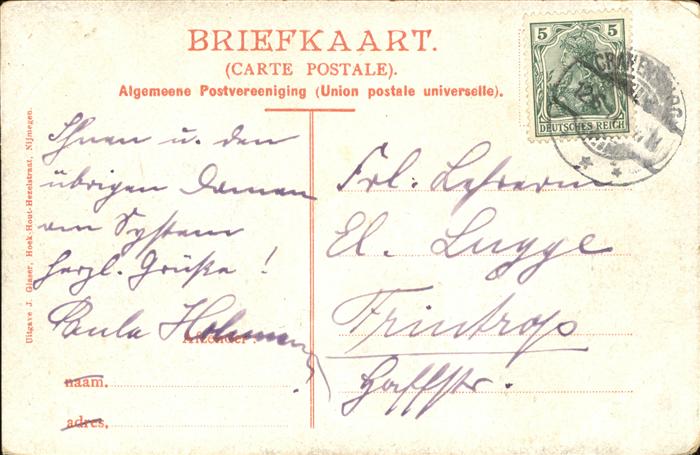 BRIEFKAART.
(CARTE POSTALE).
Algemeene Postvereeniging (Union postale universelle).
5 5
DEUTSCHES REICH
Uitgave J. Glaser, Hoek-Hout-Hezelstraat, Nijmegen.
Ihnen u. den
übrigen Damen
am System
herzl. Grüße!
Paula
Afzender
naam.
adres.
Frl. Lehrerin
El. Lugge
Frintrop